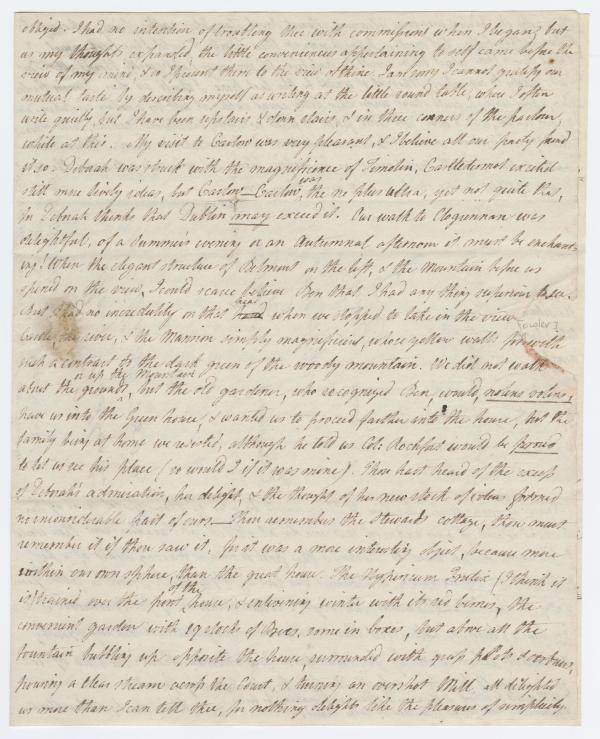 obliged. I had no intention of troubling thee with commissions when I began, but
as my thoughts expanded the little conveniences appertaining to self came before the
view of my mind, & so I present them to the view of thine. I am sorry I cannot gratify our
mutual taste by describing myself as writing at the little round table, where I often
write quietly, but I have been upstairs & down stairs, & in three corners of the parlour,
while at this. My visit to Carlow was very pleasant, & I believe all our party found
it so. Deborah was struck with the magnificence of Timolin, Castledermot excited
still more lively ideas, but Carlow — Carlow, was the ne plus ultra, yet not quite that,
for Deborah thinks that Dublin may exceed it. Our walk to Clogrennan was
delightful, of a summer's evening or an Autumnal afternoon it must be enchant-
ing! When the elegant structure of Belmont on the left, & the Mountain before us
opened on the view, I could scarce believe Ben that I had any thing superior to see.
But I had no incredulity on that head when we stopped to take in the view
castle, the river, & the Mansion simply magnificent, whose yellow walls form
such a contrast to the dark green of the woody mountain. We did not walk
about the grounds, or up the Mountain but the old gardener, who recognized Ben, would, nolens volens,
have us into the Green house, & wanted us to proceed farther into the house, but the
family being at home we resisted, although he told us Col: Rochfort would be proud
to let us see his place (so would I if it was mine). Thou hast heard of the excess
of Deborah's admiration, her delight, & the thought of her new stock of ideas formed
no inconsiderable part of ours — Thou remember the Stewards cottage, thou must
remember it if thou saw it, for it was a more interesting object, because more
within our own sphere, than the great house. The Hypericum Frutex (I think it
is) trained over the front of the house, & enlivening winter with its red berries, the
convenient garden with 19 stocks of Bees, some in boxes, but above all the
fountain bubbling up opposite the house, surrounded with grass plots &
pouring a clear stream across the Court, & turning an overshot Mill, all delighted
us more than I can tell thee, for nothing delights like the pleasures of simplicity.